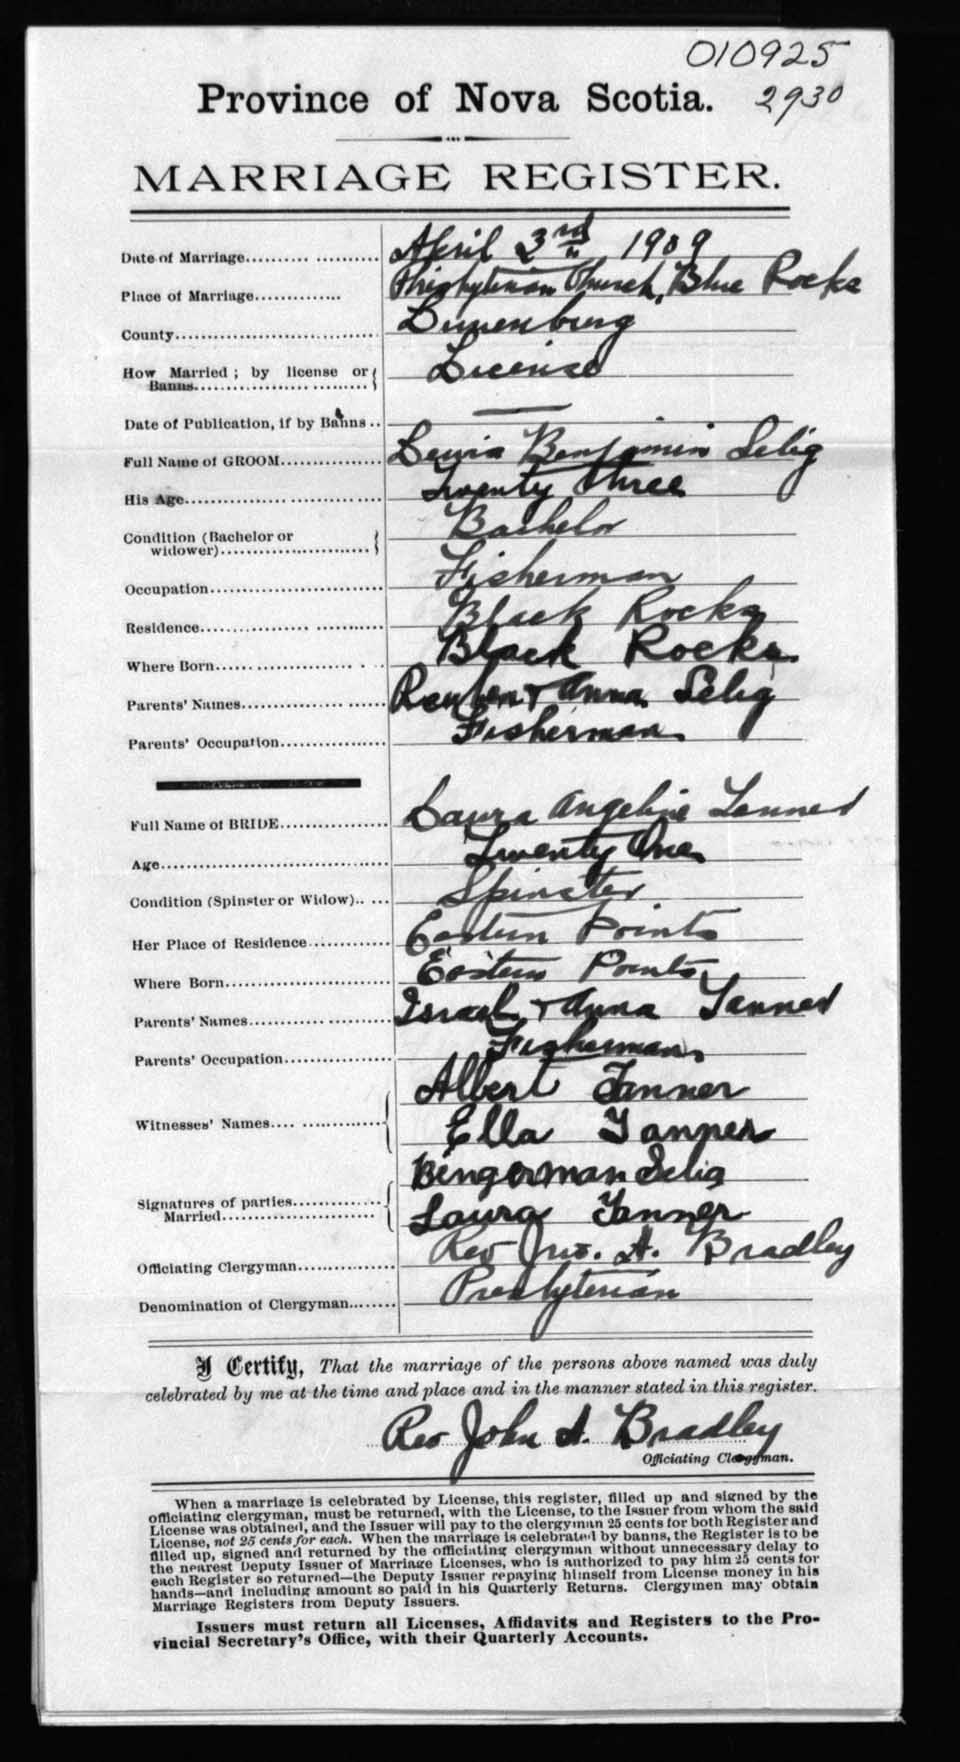 010925
2930
Province of Nova Scotia.
MARRIAGE REGISTER.
Date of Marriage.................... April 3rd 1909
Place of Marriage............. Presbyterian Church, Blue Rocks
County.............................. Lunenburg
How Married; by license or Banns..................... License
Date of Publication, if by Banns.. —
Full Name of GROOM............... Lewis Benjamin Selig
His Age............................. Twenty Three
Condition (Bachelor or widower)...................... Bachelor
Occupation......................... Fisherman
Residence.......................... Black Rocks
Where Born...................... Black Rocks
Parents' Names..................... Reuben & Anna Selig
Parents' Occupation................ Fisherman
Full Name of BRIDE................ Laura Angeline Tanner
Age.................................. Twenty One
Condition (Spinster or Widow)..... Spinster
Her Place of Residence............ Eastern Points
Where Born......................... Eastern Points
Parents' Names..................... Israel & Anna Tanner
Parents' Occupation................ Fisherman
Albert Tanner
Witnesses' Names.... ............. Ella Tanner
Bengerman Selig
Signatures of parties Married..................... Laura Tanner
Officiating Clergyman............... Rev Jno. A. Bradley
Denomination of Clergyman........ Presbyterian
I Certify, That the marriage of the persons above named was duly
celebrated by me at the time and place and in the manner stated in this register.
Rev John A. Bradley
Officiating Clergyman.
When a marriage is celebrated by License, this register, filled up and signed by the
officiating clergyman, must be returned, with the License, to the Issuer from whom the said
License was obtained, and the Issuer will pay to the clergyman 25 cents for both Register and
License, not 25 cents for each. When the marriage is celebrated by banns, the Register is to be
filled up, signed and returned by the officiating clergyman without unnecessary delay to
the nearest Deputy Issuer of Marriage Licenses, who is authorized to pay him 25 cents for
each Register so returned—the Deputy Issuer repaying himself from License money in his
hands—and including amount so paid in his Quarterly Returns. Clergymen may obtain
Marriage Registers from Deputy Issuers.
Issuers must return all Licenses, Affidavits and Registers to the Pro-
vincial Secretary's Office, with their Quarterly Accounts.